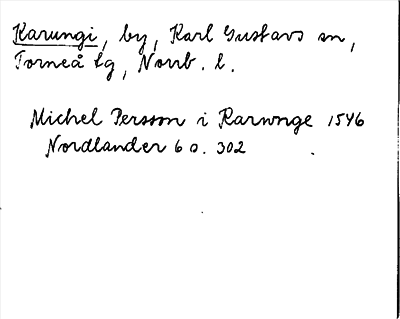 Karungi, by, Karl Gustavs sn,
Torneå tg, Norrb. l.
Michel Persson i Karwnge 1546
Nordlander 6 o. 302